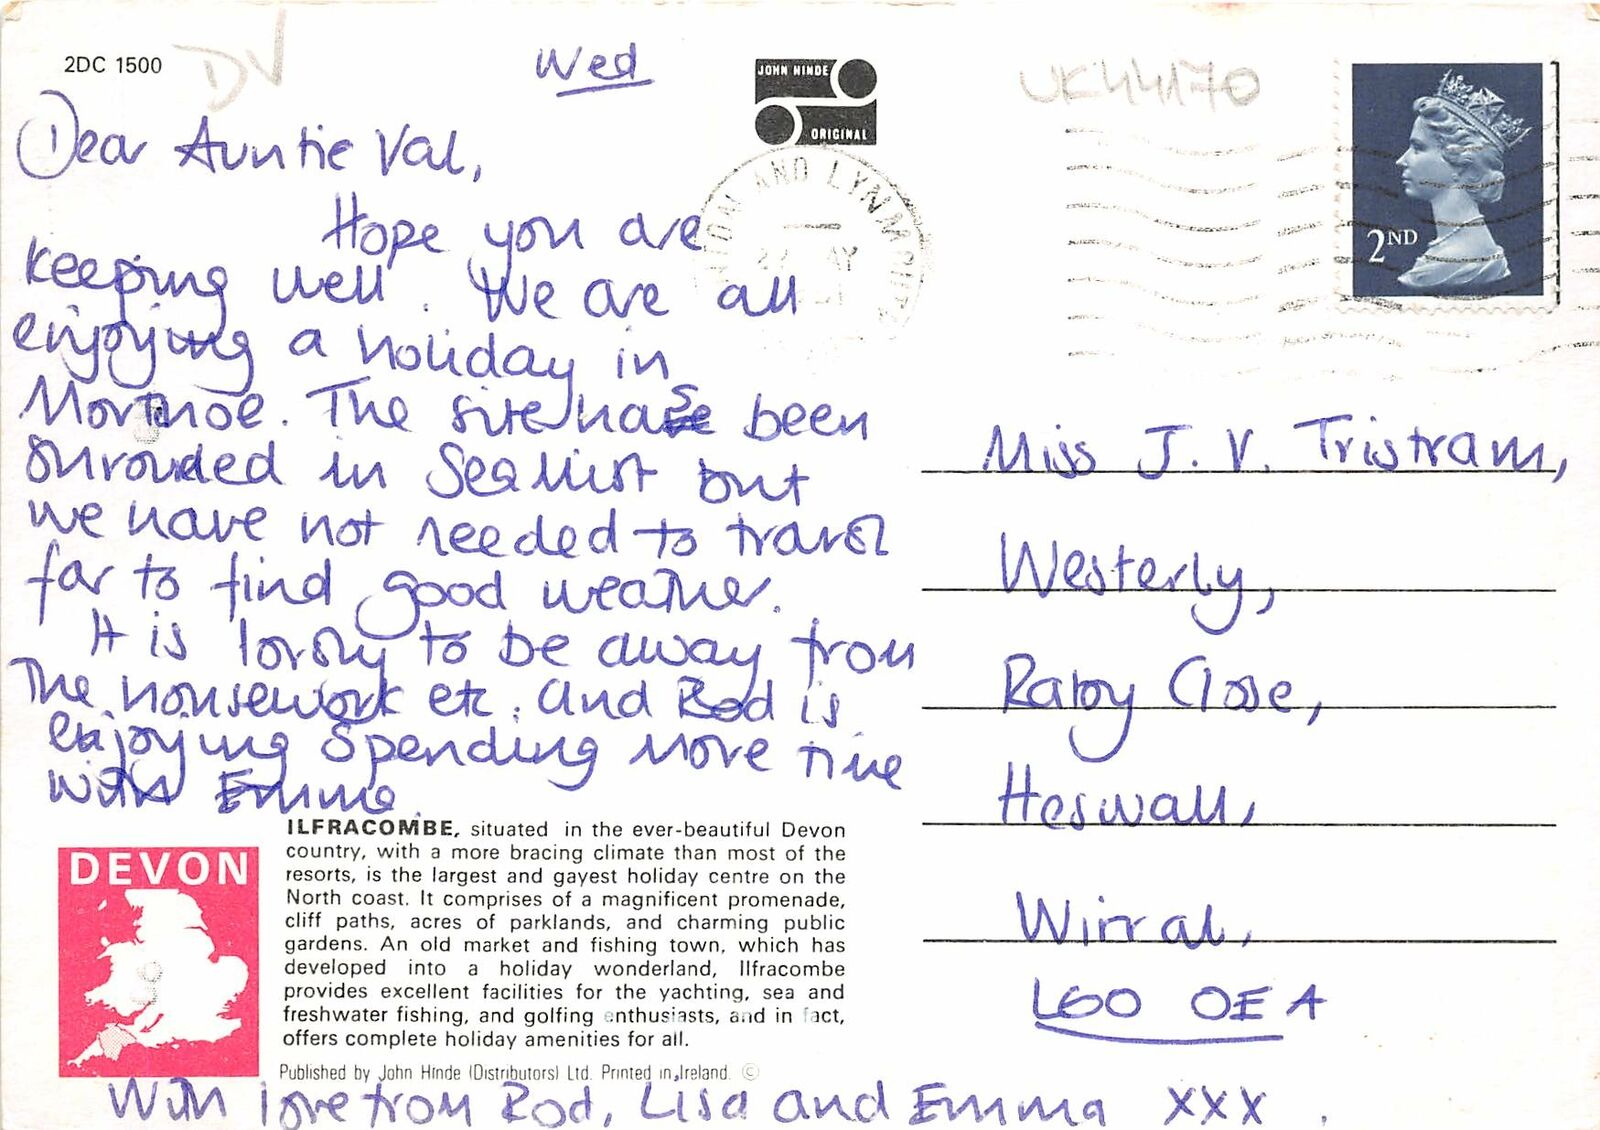 2DC 1500
DV
Wed
JOHN HINDE
ORIGINAL
UK44170
Dear Auntie Val,
Hope you are
keeping well. We are all
enjoying a holiday in
Mortehoe. The site has been
shrouded in sea mist but
we have not needed to travel
far to find good weather.
It is lovely to be away from
the housework etc. and Rod is
enjoying spending more time
with Emma.
With love from Rod, Lisa and Emma xxx.
AND LYNMOUTH
2ND
Miss J. V. Tristram,
Westerly,
Raby Close,
Heswall,
Wirral,
L60 0EA
DEVON
ILFRACOMBE, situated in the ever-beautiful Devon
country, with a more bracing climate than most of the
resorts, is the largest and gayest holiday centre on the
North coast. It comprises of a magnificent promenade,
cliff paths, acres of parklands, and charming public
gardens. An old market and fishing town, which has
developed into a holiday wonderland, Ilfracombe
provides excellent facilities for the yachting, sea and
freshwater fishing, and golfing enthusiasts, and in fact,
offers complete holiday amenities for all.
Published by John Hinde (Distributors) Ltd. Printed in Ireland. ©